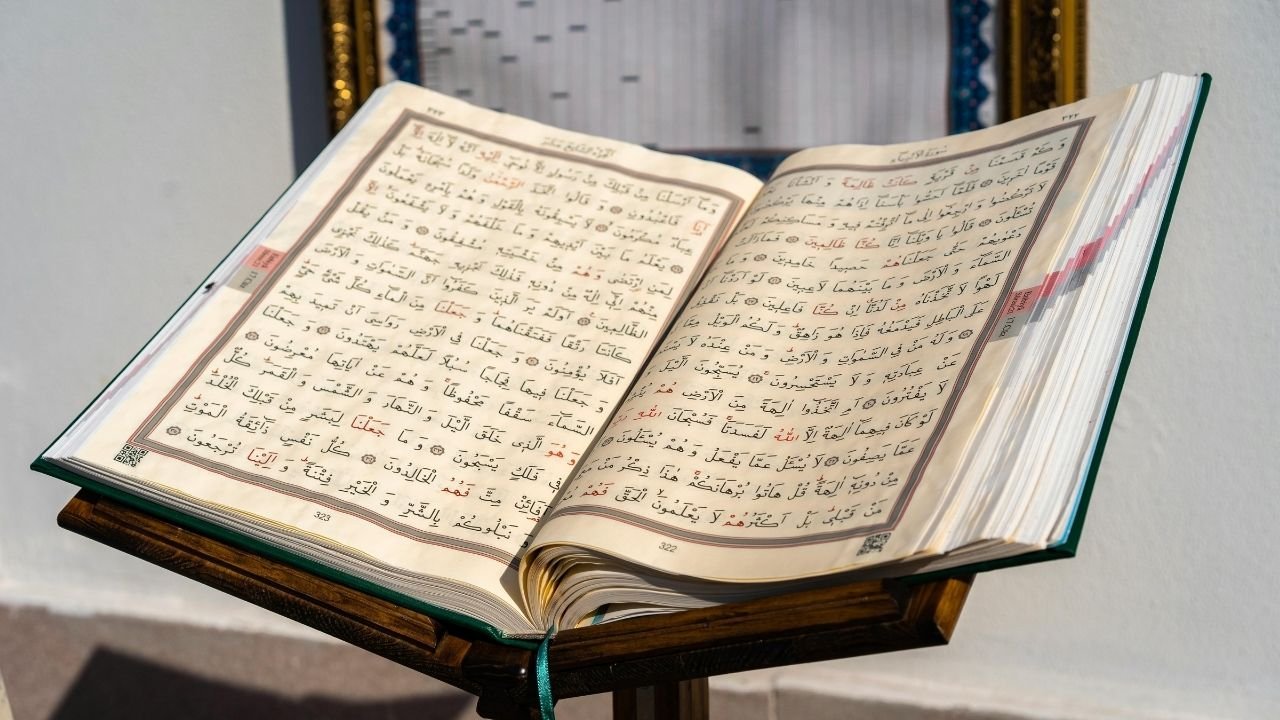 ٣٢٢
سُورَةُ الْاَنْبِيَاءِ
وَكَمْ قَصَمْنَا مِنْ قَرْيَةٍ كَانَتْ ظَالِمَةً وَاَنْشَأْنَا
قَوْمًا اٰخَرِينَ فَلَمَّٓا اَحَسُّوا بَأْسَنَٓا اِذَا هُمْ مِنْهَا يَرْكُضُونَ
لَا تَرْكُضُوا وَارْجِعُٓوا اِلٰى مَٓا اُتْرِفْتُمْ فِيهِ وَمَسَاكِنِكُمْ
تُسْـَٔلُونَ قَالُوا يَا وَيْلَنَٓا اِنَّا كُنَّا ظَالِمِينَ فَمَا زَالَتْ
دَعْوٰيهُمْ حَتّٰى جَعَلْنَاهُمْ حَصِيدًا خَامِدِينَ وَمَا
السَّمَٓاءَ وَالْاَرْضَ وَمَا بَيْنَهُمَا لَاعِبِينَ لَوْ اَرَدْنَٓا
لَهْوًا لَاتَّخَذْنَاهُ مِنْ لَدُنَّٓا اِنْ كُنَّا فَاعِلِينَ بَلْ نَقْذِفُ
عَلَى الْبَاطِلِ فَيَدْمَغُهُ فَاِذَا هُوَ زَاهِقٌ وَلَكُمُ الْوَيْلُ مِمَّا
وَلَهُ مَنْ فِي السَّمٰوَاتِ وَالْاَرْضِ وَمَنْ عِنْدَهُ لَا
عَنْ عِبَادَتِهِ وَلَا يَسْتَحْسِرُونَ يُسَبِّحُونَ الَّيْلَ
لَا يَفْتُرُونَ اَمِ اتَّخَذُٓوا اٰلِهَةً مِنَ الْاَرْضِ هُمْ
لَوْ كَانَ فِيهِمَٓا اٰلِهَةٌ اِلَّا اللّٰهُ لَفَسَدَتَا فَسُبْحَانَ اللّٰهِ
عَمَّا يَصِفُونَ لَا يُسْـَٔلُ عَمَّا يَفْعَلُ وَهُمْ يُسْـَٔلُونَ
مِنْ دُونِهِ اٰلِهَةً قُلْ هَاتُوا بُرْهَانَكُمْ هٰذَا ذِكْرُ مَنْ
مِنْ قَبْلِي بَلْ اَكْثَرُهُمْ لَا يَعْلَمُونَ الْحَقَّ فَهُمْ
322
٣٢٣
وَمَٓا اَرْسَلْنَا مِنْ قَبْلِكَ مِنْ رَسُولٍ اِلَّا نُوحِٓي اِلَيْهِ اَنَّهُ لَٓا اِلٰهَ اِلَّٓا
اَنَا۬ فَاعْبُدُونِ وَقَالُوا اتَّخَذَ الرَّحْمٰنُ وَلَدًا سُبْحَانَهُ بَلْ
عِبَادٌ مُكْرَمُونَ لَا يَسْبِقُونَهُ بِالْقَوْلِ وَهُمْ بِاَمْرِهِ يَعْمَلُونَ
يَعْلَمُ مَا بَيْنَ اَيْدِيهِمْ وَمَا خَلْفَهُمْ وَلَا يَشْفَعُونَ اِلَّا
لِمَنِ ارْتَضٰى وَهُمْ مِنْ خَشْيَتِهِ مُشْفِقُونَ وَمَنْ يَقُلْ
مِنْهُمْ اِنِّٓي اِلٰهٌ مِنْ دُونِهِ فَذٰلِكَ نَجْزِيهِ جَهَنَّمَ كَذٰلِكَ نَجْزِي
الظَّالِمِينَ اَوَلَمْ يَرَ الَّذِينَ كَفَرُٓوا اَنَّ السَّمٰوَاتِ وَالْاَرْضَ
كَانَتَا رَتْقًا فَفَتَقْنَاهُمَا وَجَعَلْنَا مِنَ الْمَٓاءِ كُلَّ شَيْءٍ حَيٍّ
اَفَلَا يُؤْمِنُونَ وَجَعَلْنَا فِي الْاَرْضِ رَوَاسِيَ اَنْ تَمِيدَ بِهِمْ
وَجَعَلْنَا فِيهَا فِجَاجًا سُبُلًا لَعَلَّهُمْ يَهْتَدُونَ وَجَعَلْنَا
السَّمَٓاءَ سَقْفًا مَحْفُوظًا وَهُمْ عَنْ اٰيَاتِهَا مُعْرِضُونَ
وَهُوَ الَّذِي خَلَقَ الَّيْلَ وَالنَّهَارَ وَالشَّمْسَ وَالْقَمَرَ كُلٌّ
فِي فَلَكٍ يَسْبَحُونَ وَمَا جَعَلْنَا لِبَشَرٍ مِنْ قَبْلِكَ الْخُلْدَ
مِتَّ فَهُمُ الْخَالِدُونَ كُلُّ نَفْسٍ ذَٓائِقَةُ الْمَوْتِ
نَبْلُوكُمْ بِالشَّرِّ وَالْخَيْرِ فِتْنَةً وَاِلَيْنَا تُرْجَعُونَ
323